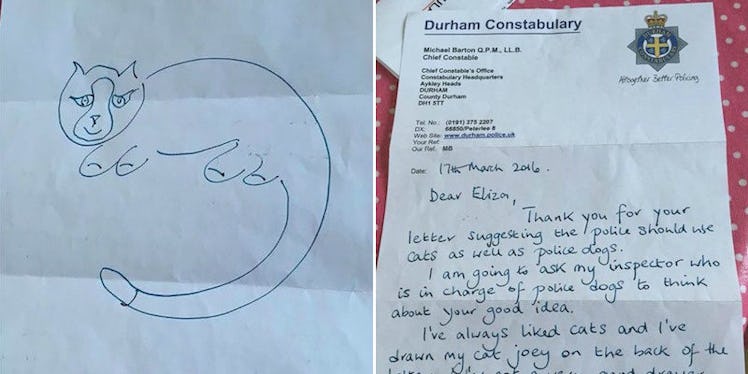 Durham Constabulary
Michael Barton Q.P.M., LL.B.
Chief Constable
Chief Constable's Office
Constabulary Headquarters
Aykley Heads
DURHAM
County Durham
DH1 5TT
Altogether Better Policing
Tel. No.: (0191) 375 2207
DX: 66850/Peterlee 8
Web Site: www.durham.police.uk
Your Ref:
Our Ref: MB
Date: 17th March 2016.
Dear Eliza,
Thank you for your
letter suggesting the police should use
cats as well as police dogs.
I am going to ask my inspector who
is in charge of police dogs to think
about your good idea.
I've always liked cats and I've
drawn my cat joey on the back of the